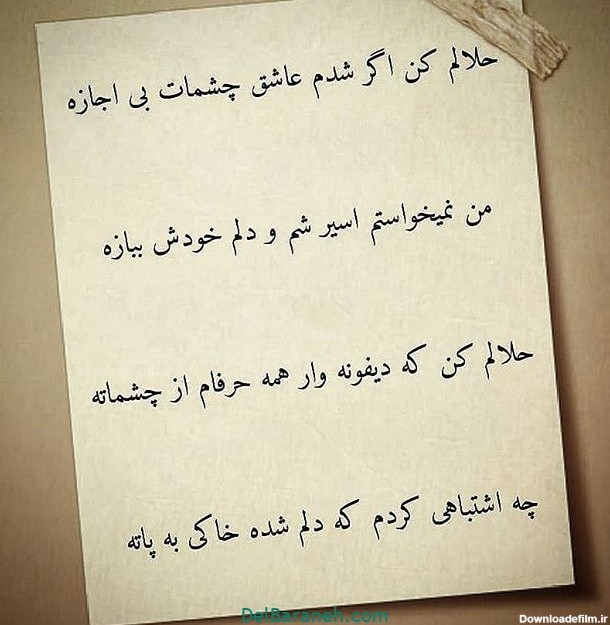 حلالم کن اگر شدم عاشق چشمات بی اجازه
من نمیخواستم اسیر شم و دلم خودش ببازه
حلالم کن که دیفونه وار همه حرفام از چشماته
چه اشتباهی کردم که دلم شده خاکی به پاته
DelBaraneh.com
Downloadefilm.ir